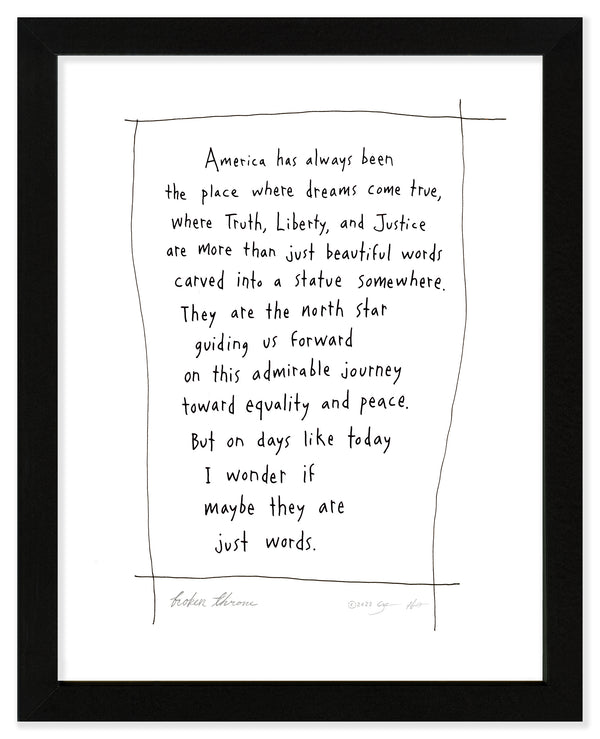 America has always been
the place where dreams come true,
where Truth, Liberty, and Justice
are more than just beautiful words
carved into a statue somewhere.
They are the north star
guiding us forward
on this admirable journey
toward equality and peace.
But on days like today
I wonder if
maybe they are
just words.
broken throne ©2020